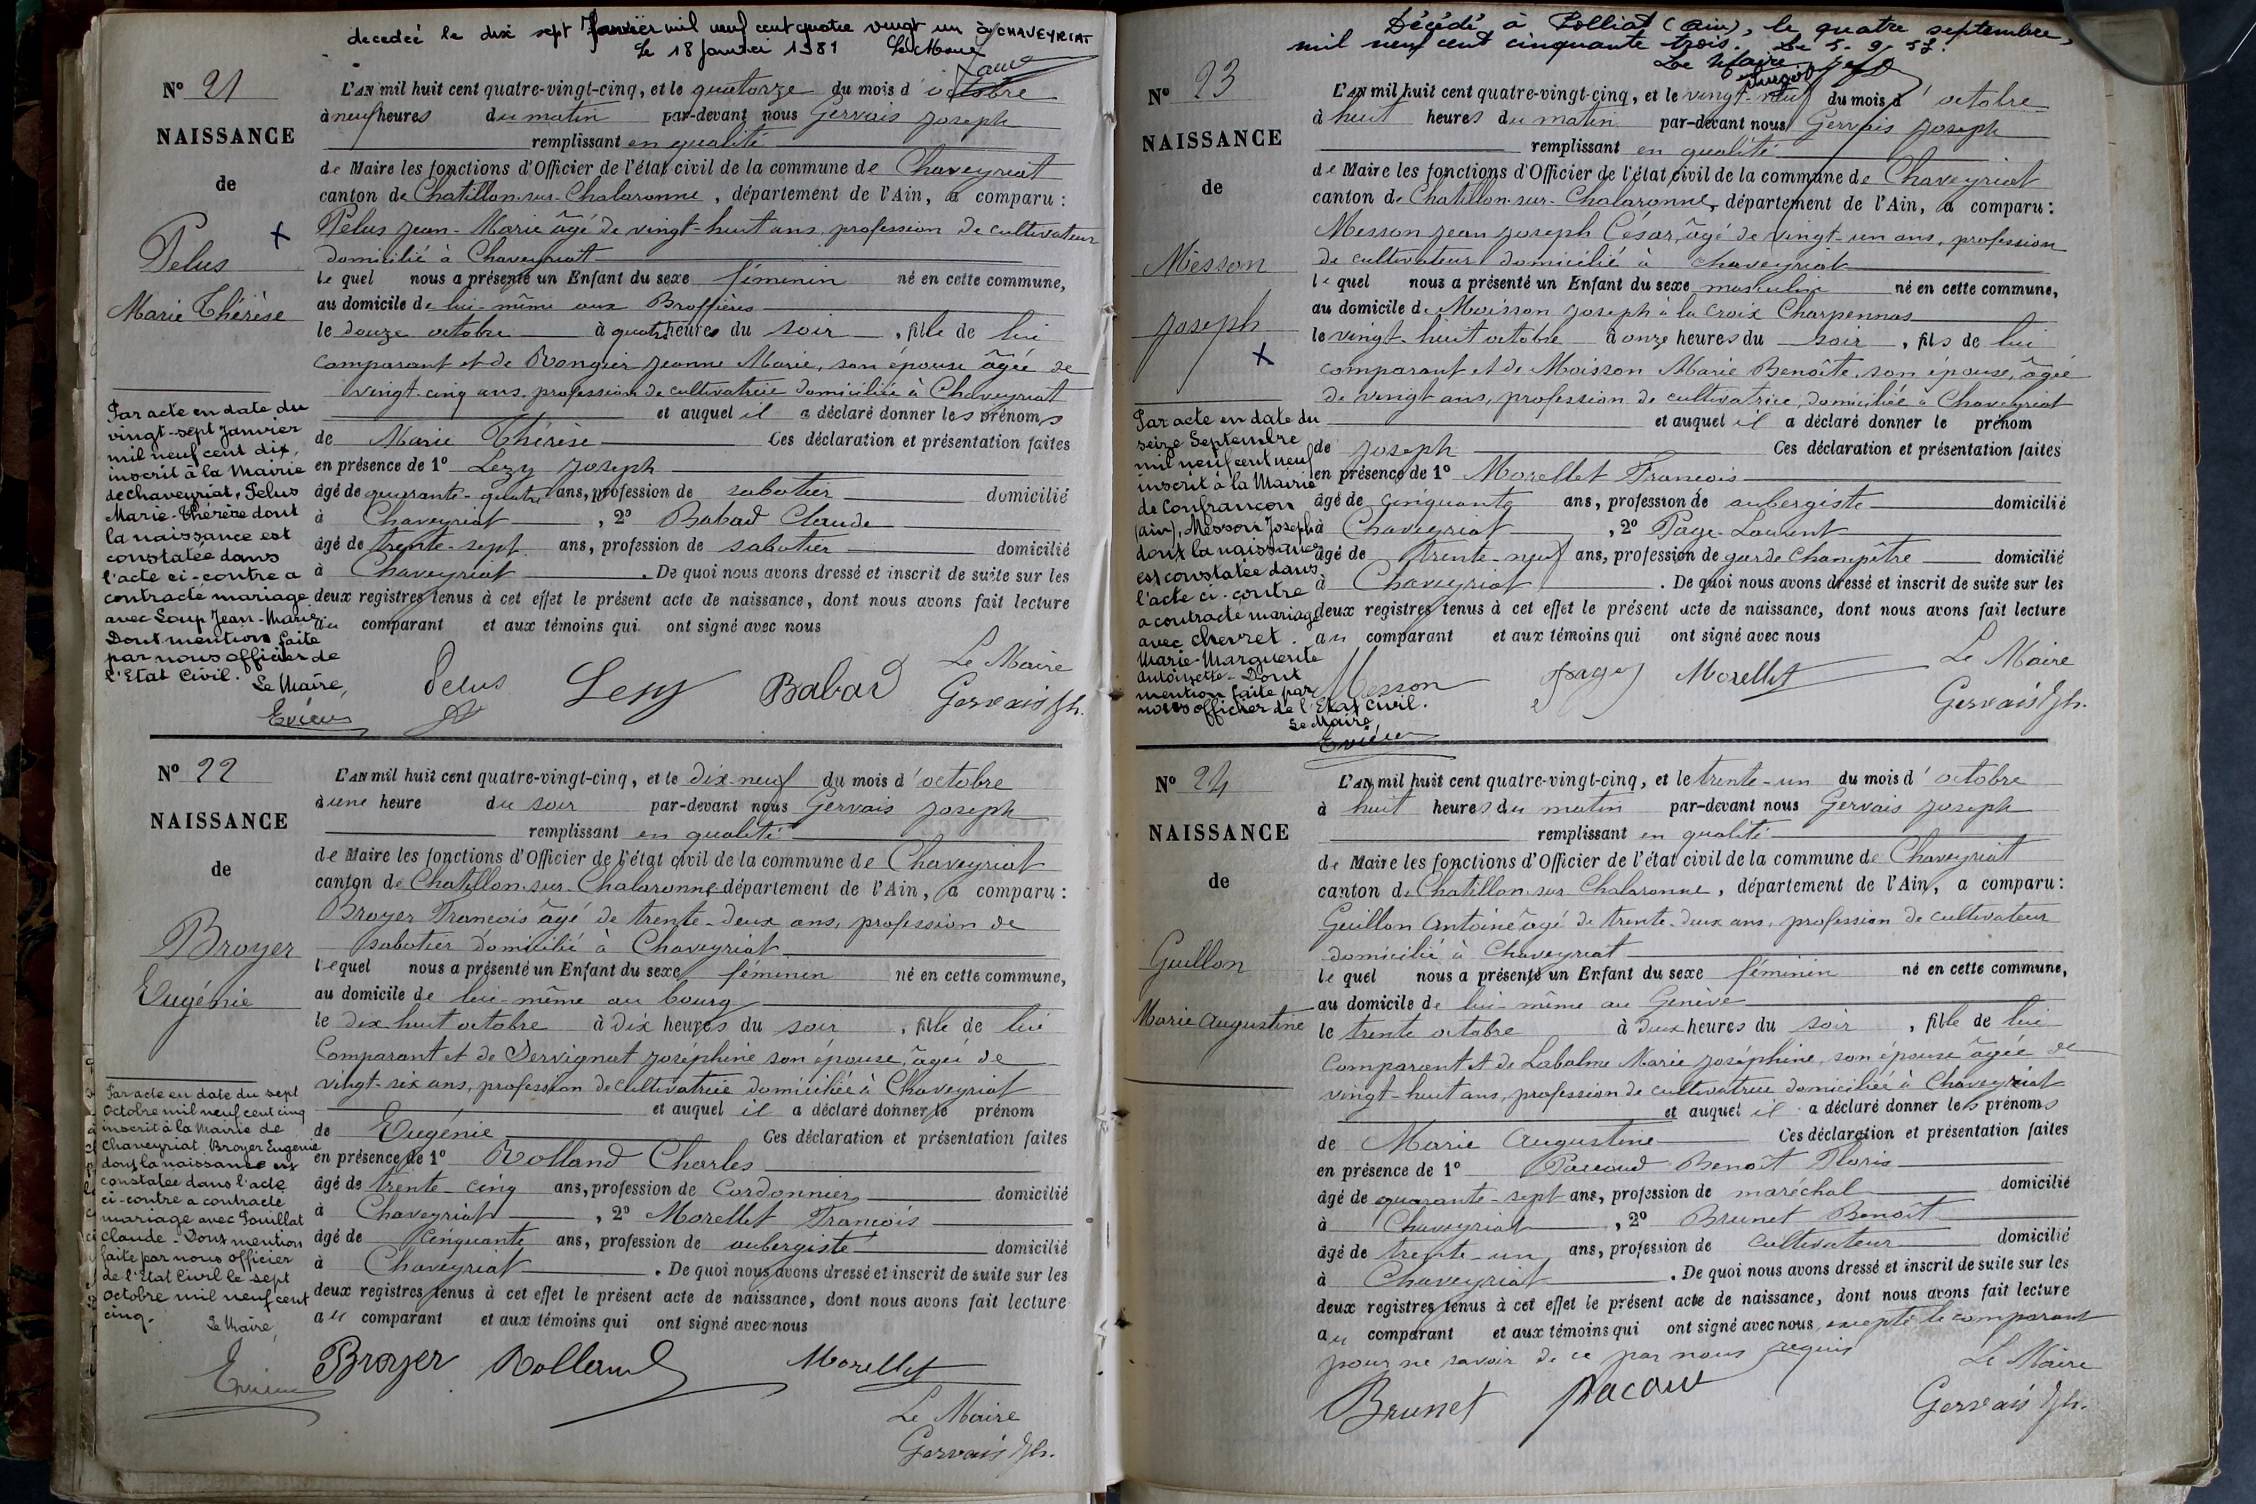 decedeé le dix sept Janvier mil neuf cent quatre vingt un à CHAVEYRIAT
Le 18 janvier 1981 Le Maire
N° 21
NAISSANCE
de
Pelus
Marie Thérèse
L'AN mil huit cent quatre-vingt-cinq, et le quatorze du mois d'octobre
à neuf heures du matin par-devant nous Gervais Joseph
remplissant en qualité
de Maire les fonctions d'Officier de l'état civil de la commune de Chaveyriat
canton de Chatillon-sur-Chalaronne, département de l'Ain, a comparu :
Pelus Jean-Marie âgé de vingt-huit ans, profession de cultivateur
domicilié à Chaveyriat
le quel nous a présenté un Enfant du sexe féminin né en cette commune,
au domicile de lui-même aux Broffières
le douze octobre à quatre heures du soir, fille de lui
comparant et de Rongier Jeanne Marie, son épouse âgée de
vingt-cinq ans, profession de cultivatrice domiciliée à Chaveyriat
et auquel il a déclaré donner les prénoms
de Marie Thérèse Ces déclaration et présentation faites
en présence de 1° Lezy Joseph
âgé de quarante-quatre ans, profession de sabotier domicilié
à Chaveyriat, 2° Babad Claude
âgé de trente-sept ans, profession de sabotier domicilié
à Chaveyriat. De quoi nous avons dressé et inscrit de suite sur les
deux registres tenus à cet effet le présent acte de naissance, dont nous avons fait lecture
au comparant et aux témoins qui ont signé avec nous
Pelus Lezy Babad Le Maire
Gervais Jh.
Par acte en date du
vingt-sept Janvier
mil neuf cent dix,
inscrit à la Mairie
de chaveyriat, Pelus
Marie-Thérèse dont
la naissance est
constatée dans
l'acte ci-contre a
contracté mariage
avec Loup Jean-Marie
Dont mention faite
par nous officier de
l'Etat Civil.
Le Maire,
Evieux
N° 22
NAISSANCE
de
Broyer
Eugénie
L'AN mil huit cent quatre-vingt-cinq, et le dix-neuf du mois d'octobre
à une heure du soir par-devant nous Gervais Joseph
remplissant en qualité
de Maire les fonctions d'Officier de l'état civil de la commune de Chaveyriat
canton de Chatillon-sur-Chalaronne département de l'Ain, a comparu :
Broyer François âgé de trente-deux ans, profession de
sabotier domicilié à Chaveyriat
lequel nous a présenté un Enfant du sexe féminin né en cette commune,
au domicile de lui-même au bourg
le dix-huit octobre à dix heures du soir, fille de lui
Comparant et de Servignat Joséphine son épouse, âgée de
vingt-six ans, profession de cultivatrice domiciliée à Chaveyriat
et auquel il a déclaré donner le prénom
de Eugénie Ces déclaration et présentation faites
en présence de 1° Rolland Charles
âgé de trente-cinq ans, profession de Cordonnier domicilié
à Chaveyriat, 2° Morellet François
âgé de cinquante ans, profession de aubergiste domicilié
à Chaveyriat. De quoi nous avons dressé et inscrit de suite sur les
deux registres tenus à cet effet le présent acte de naissance, dont nous avons fait lecture
au comparant et aux témoins qui ont signé avec nous
Broyer Rolland Morellet
Le Maire
Gervais Jh.
Par acte en date du sept
Octobre mil neuf cent cinq
inscrit à la Mairie de
Chaveyriat Broyer Eugénie
dont la naissance est
constatée dans l'acte
ci-contre a contracté
mariage avec Pouillat
Claude. Dont mention
faite par nous officier
de l'Etat Civil le sept
octobre mil neuf cent
cinq.
Le Maire,
Evieux
Décédé à Polliat (Ain), le quatre septembre,
mil neuf cent cinquante trois. Le 5-9-53.
Le Maire.
N° 23
NAISSANCE
de
Messon
Joseph
L'AN mil huit cent quatre-vingt-cinq, et le vingt-neuf du mois d'octobre
à huit heures du matin par-devant nous Gervais Joseph
remplissant en qualité
de Maire les fonctions d'Officier de l'état civil de la commune de Chaveyriat
canton de Chatillon-sur-Chalaronne, département de l'Ain, a comparu :
Messon Jean Joseph César, âgé de vingt-un ans, profession
de cultivateur domicilié à Chaveyriat
le quel nous a présenté un Enfant du sexe masculin né en cette commune,
au domicile de Moisson Joseph à la Croix Charpennas
le vingt-huit octobre à onze heures du soir, fils de lui
comparant et de Moisson Marie Benoîte, son épouse, âgée
de vingt ans, profession de cultivatrice, domiciliée à Chaveyriat
et auquel il a déclaré donner le prénom
de Joseph Ces déclaration et présentation faites
en présence de 1° Morellet François
âgé de cinquante ans, profession de aubergiste domicilié
à Chaveyriat, 2° Page Laurent
âgé de trente-neuf ans, profession de garde champêtre domicilié
à Chaveyriat. De quoi nous avons dressé et inscrit de suite sur les
deux registres tenus à cet effet le présent acte de naissance, dont nous avons fait lecture
au comparant et aux témoins qui ont signé avec nous
Messon Page Morellet Le Maire
Gervais Jh.
Par acte en date du
seize Septembre
mil neuf cent neuf
inscrit à la Mairie
de Confrançon
(ain), Messon Joseph
dont la naissance
est constatée dans
l'acte ci-contre
a contracté mariage
avec Chevret
Marie-Marguerite
Antoinette. Dont
mention faite par
nous officier de l'Etat Civil.
Le Maire,
Evieux
N° 24
NAISSANCE
de
Guillon
Marie Augustine
L'AN mil huit cent quatre-vingt-cinq, et le trente-un du mois d'octobre
à huit heures du matin par-devant nous Gervais Joseph
remplissant en qualité
de Maire les fonctions d'Officier de l'état civil de la commune de Chaveyriat
canton de Chatillon-sur-Chalaronne, département de l'Ain, a comparu :
Guillon Antoine âgé de trente-deux ans, profession de cultivateur
domicilié à Chaveyriat
le quel nous a présenté un Enfant du sexe féminin né en cette commune,
au domicile de lui-même au Genève
le trente octobre à deux heures du soir, fille de lui
Comparant et de Labalme Marie Joséphine, son épouse âgée de
vingt-huit ans, profession de cultivatrice domiciliée à Chaveyriat
et auquel il a déclaré donner les prénoms
de Marie Augustine Ces déclaration et présentation faites
en présence de 1° Pacoud Benoît Floris
âgé de quarante-sept ans, profession de maréchal domicilié
à Chaveyriat, 2° Brunet Benoît
âgé de trente-un ans, profession de cultivateur domicilié
à Chaveyriat. De quoi nous avons dressé et inscrit de suite sur les
deux registres tenus à cet effet le présent acte de naissance, dont nous avons fait lecture
au comparant et aux témoins qui ont signé avec nous, excepté le comparant
pour ne savoir de ce par nous requis
Brunet Pacoud Le Maire
Gervais Jh.